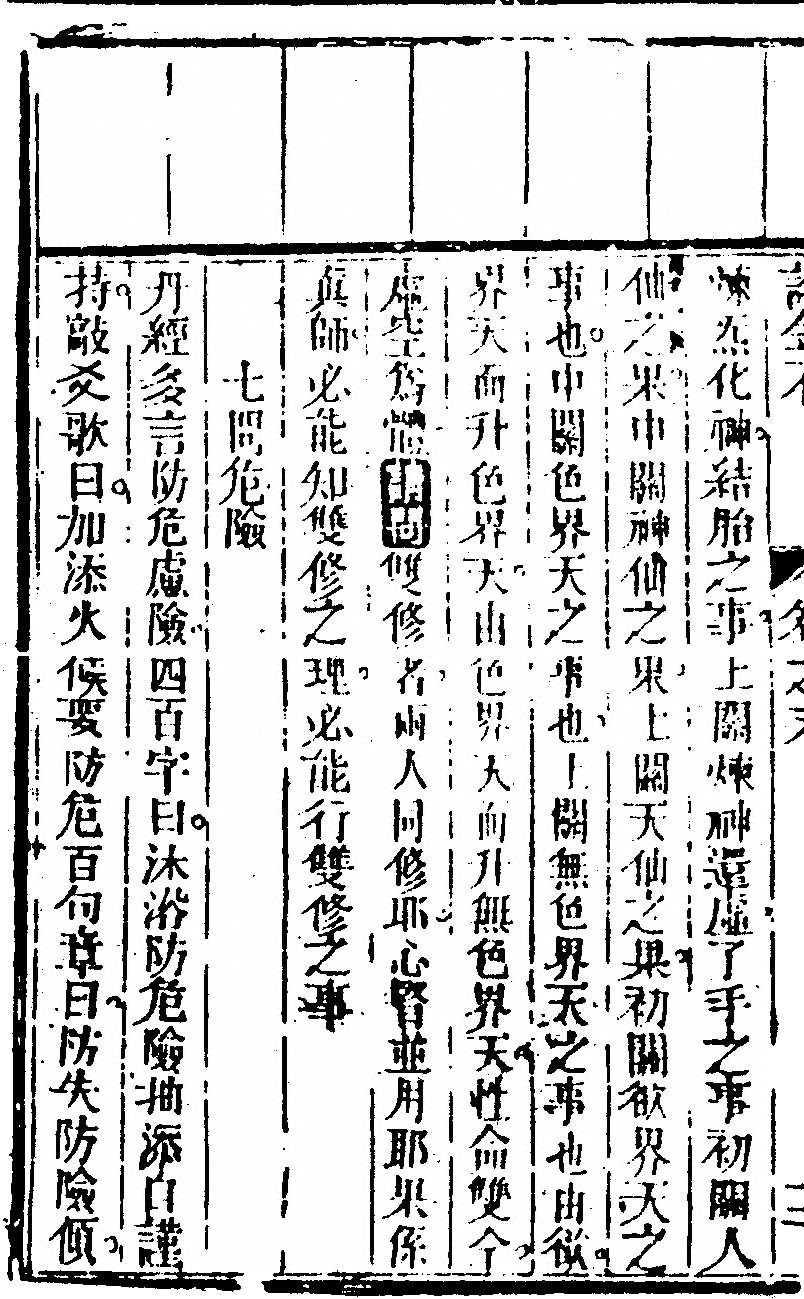 煉炁化神結胎之事上關煉神還虛了手之事初關人
仙之果中關神仙之果上關天仙之果初關欲界天之
事也中關色界天之事也上關無色界天之事也由欲
界天而升色界天由色界天而升無色界天性命雙今
虛空為體 雙修者兩人同修耶心腎並用耶果係
眞師必能知雙修之理必能行雙修之事
七問危險
丹經多言防危慮險四百字曰沐浴防危險抽添自謹
持敲爻歌曰加添火候要防危百句章曰防失防險傾